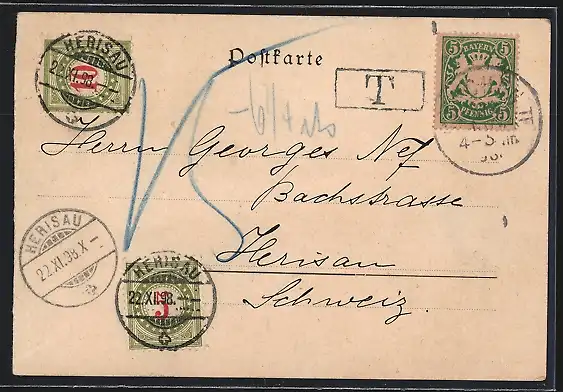 HERISAU
22.XI.98.
10
Postkarte
T
5 5
BAYERN
PFENNIG
5 5
4-5 Nm
98.
15
Herrn Georges Nef
Bachstrasse
Herisau
Schweiz.
HERISAU
22.XI.98.X-
HERISAU
22.XI.98.
5